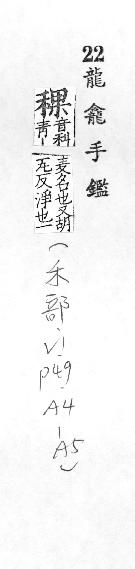 22龍龕手鑑
稞音科青丨麦名也又胡瓦反淨也一(禾部、V1-p49-A4-A5)